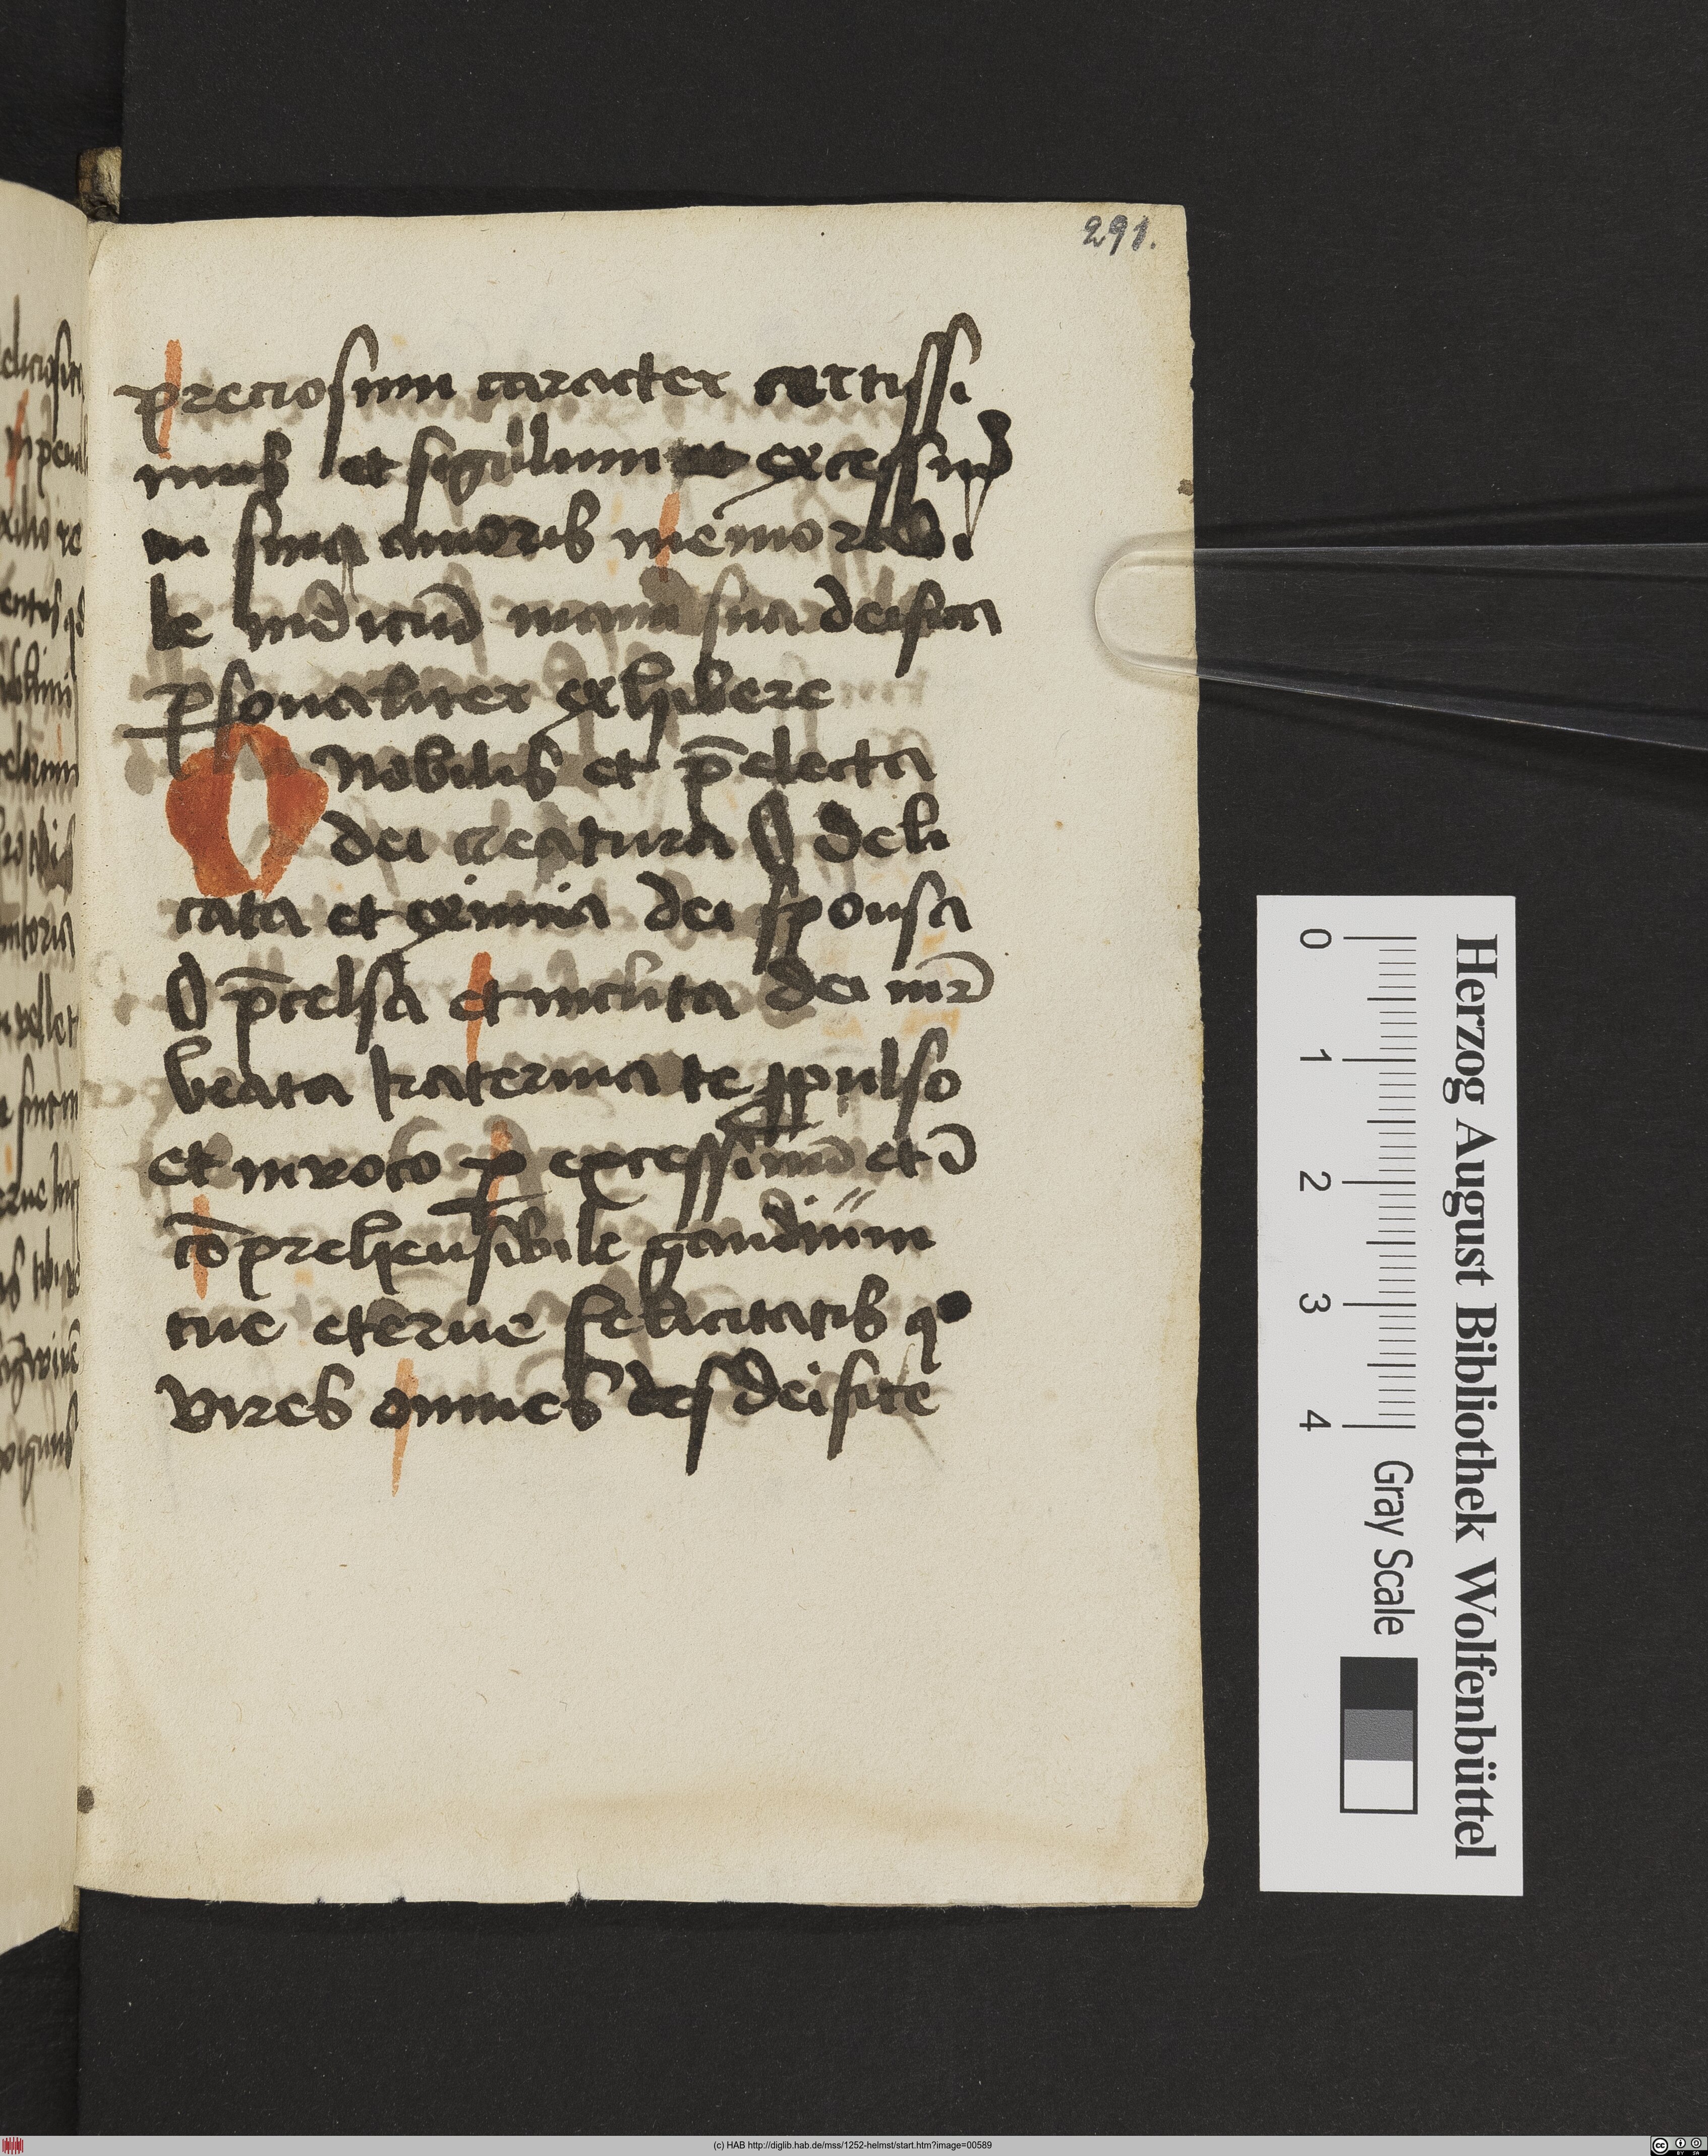 291.
preciosum caracter certissi
mus et sigillum et excessiui
in sina amoris memorabi
le indiciū manu sua deifica
ꝑsonaliter exhibere
O nobilis et p̄electa
dei creatura O deli
cata et eximia dei sponsa
O p̄celsa et incluta dei mr̄
beata katerina te ꝓpulso
et invoco ꝑ excessiuū et ī
cōprehensibile gaudium
tue eterne felicitatis qͦ
vires omnes des deifice
Herzog August Bibliothek Wolfenbüttel
0 1 2 3 4 Gray Scale
(c) HAB http://diglib.hab.de/mss/1252-helmst/start.htm?image=00589